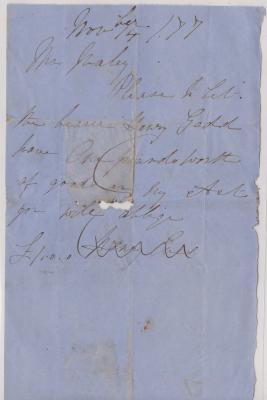 Novber 4 / 77
Mr Haley
Please to let
the bearer Henry Gadd
have One pounds worth
of goods on my Act
you will oblige
£1.0.0 Henry